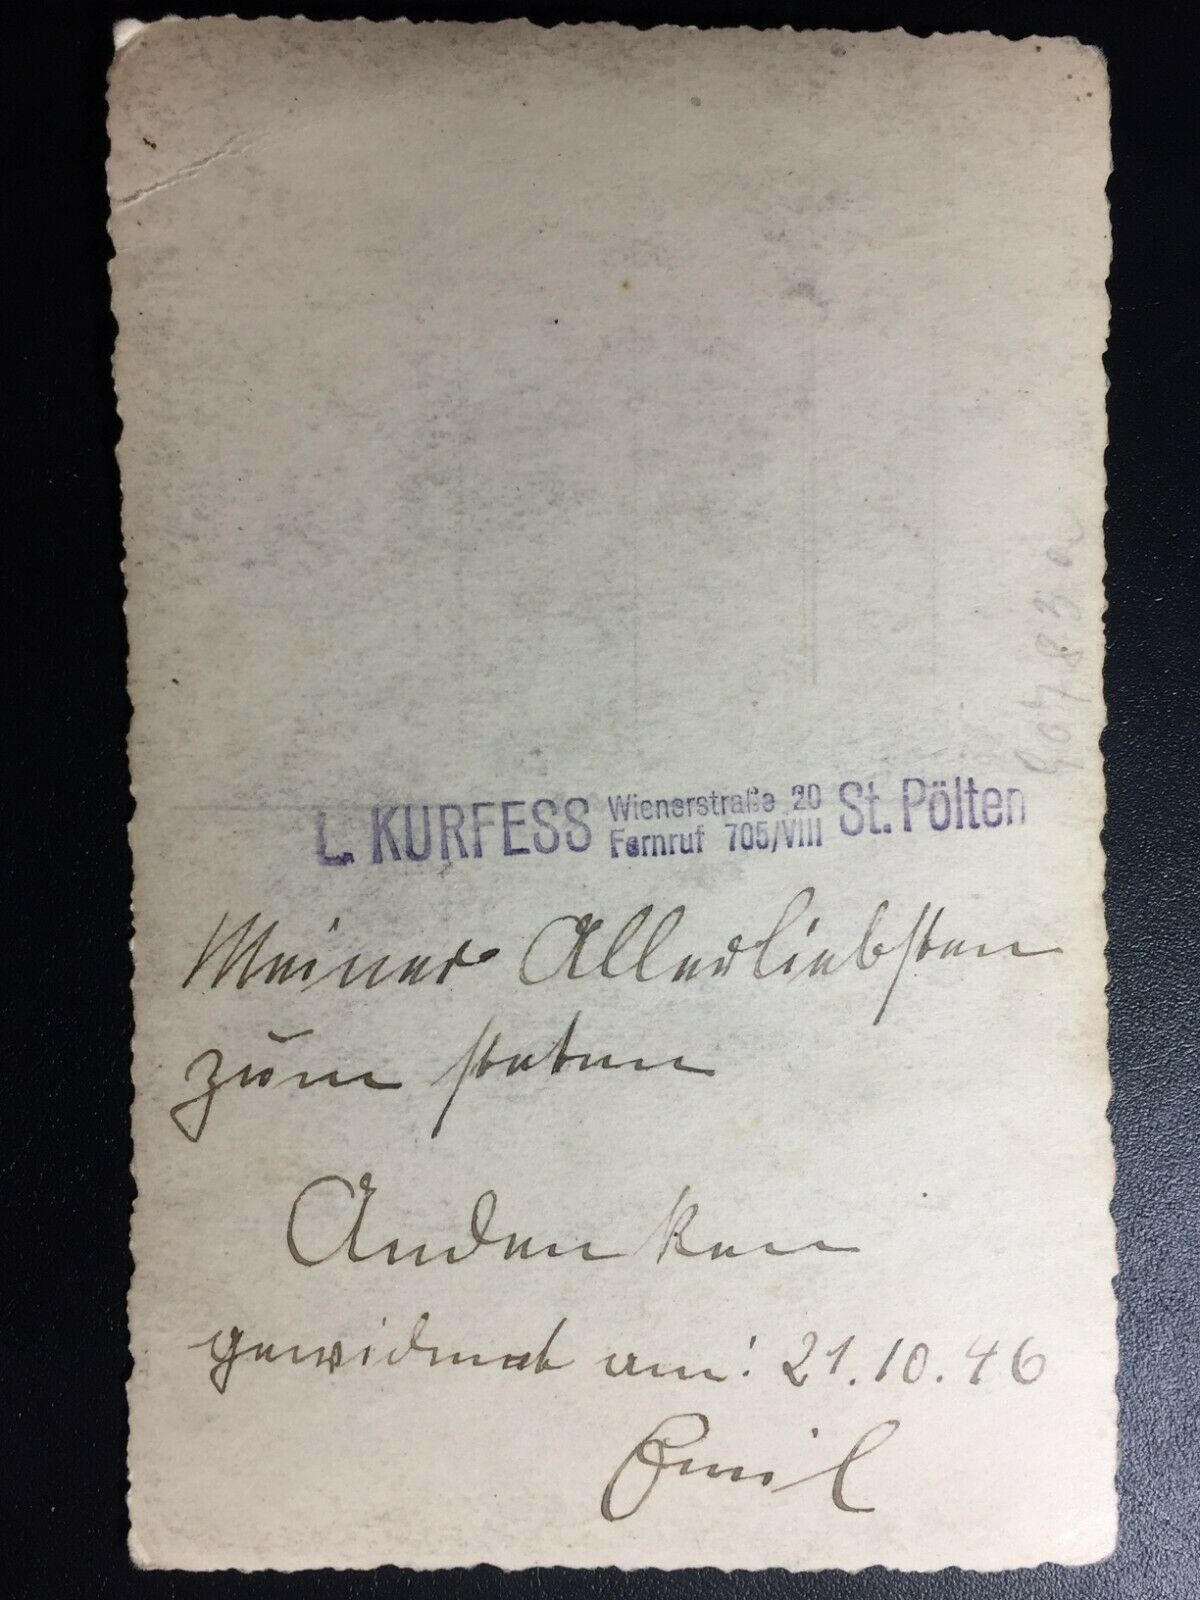 90783a
L. KURFESS Wienerstraße 20 St. Pölten
Fernruf 705/VIII
Meiner Allerliebsten
zum steten
Andenken
gewidmet am: 21.10.46
Emil